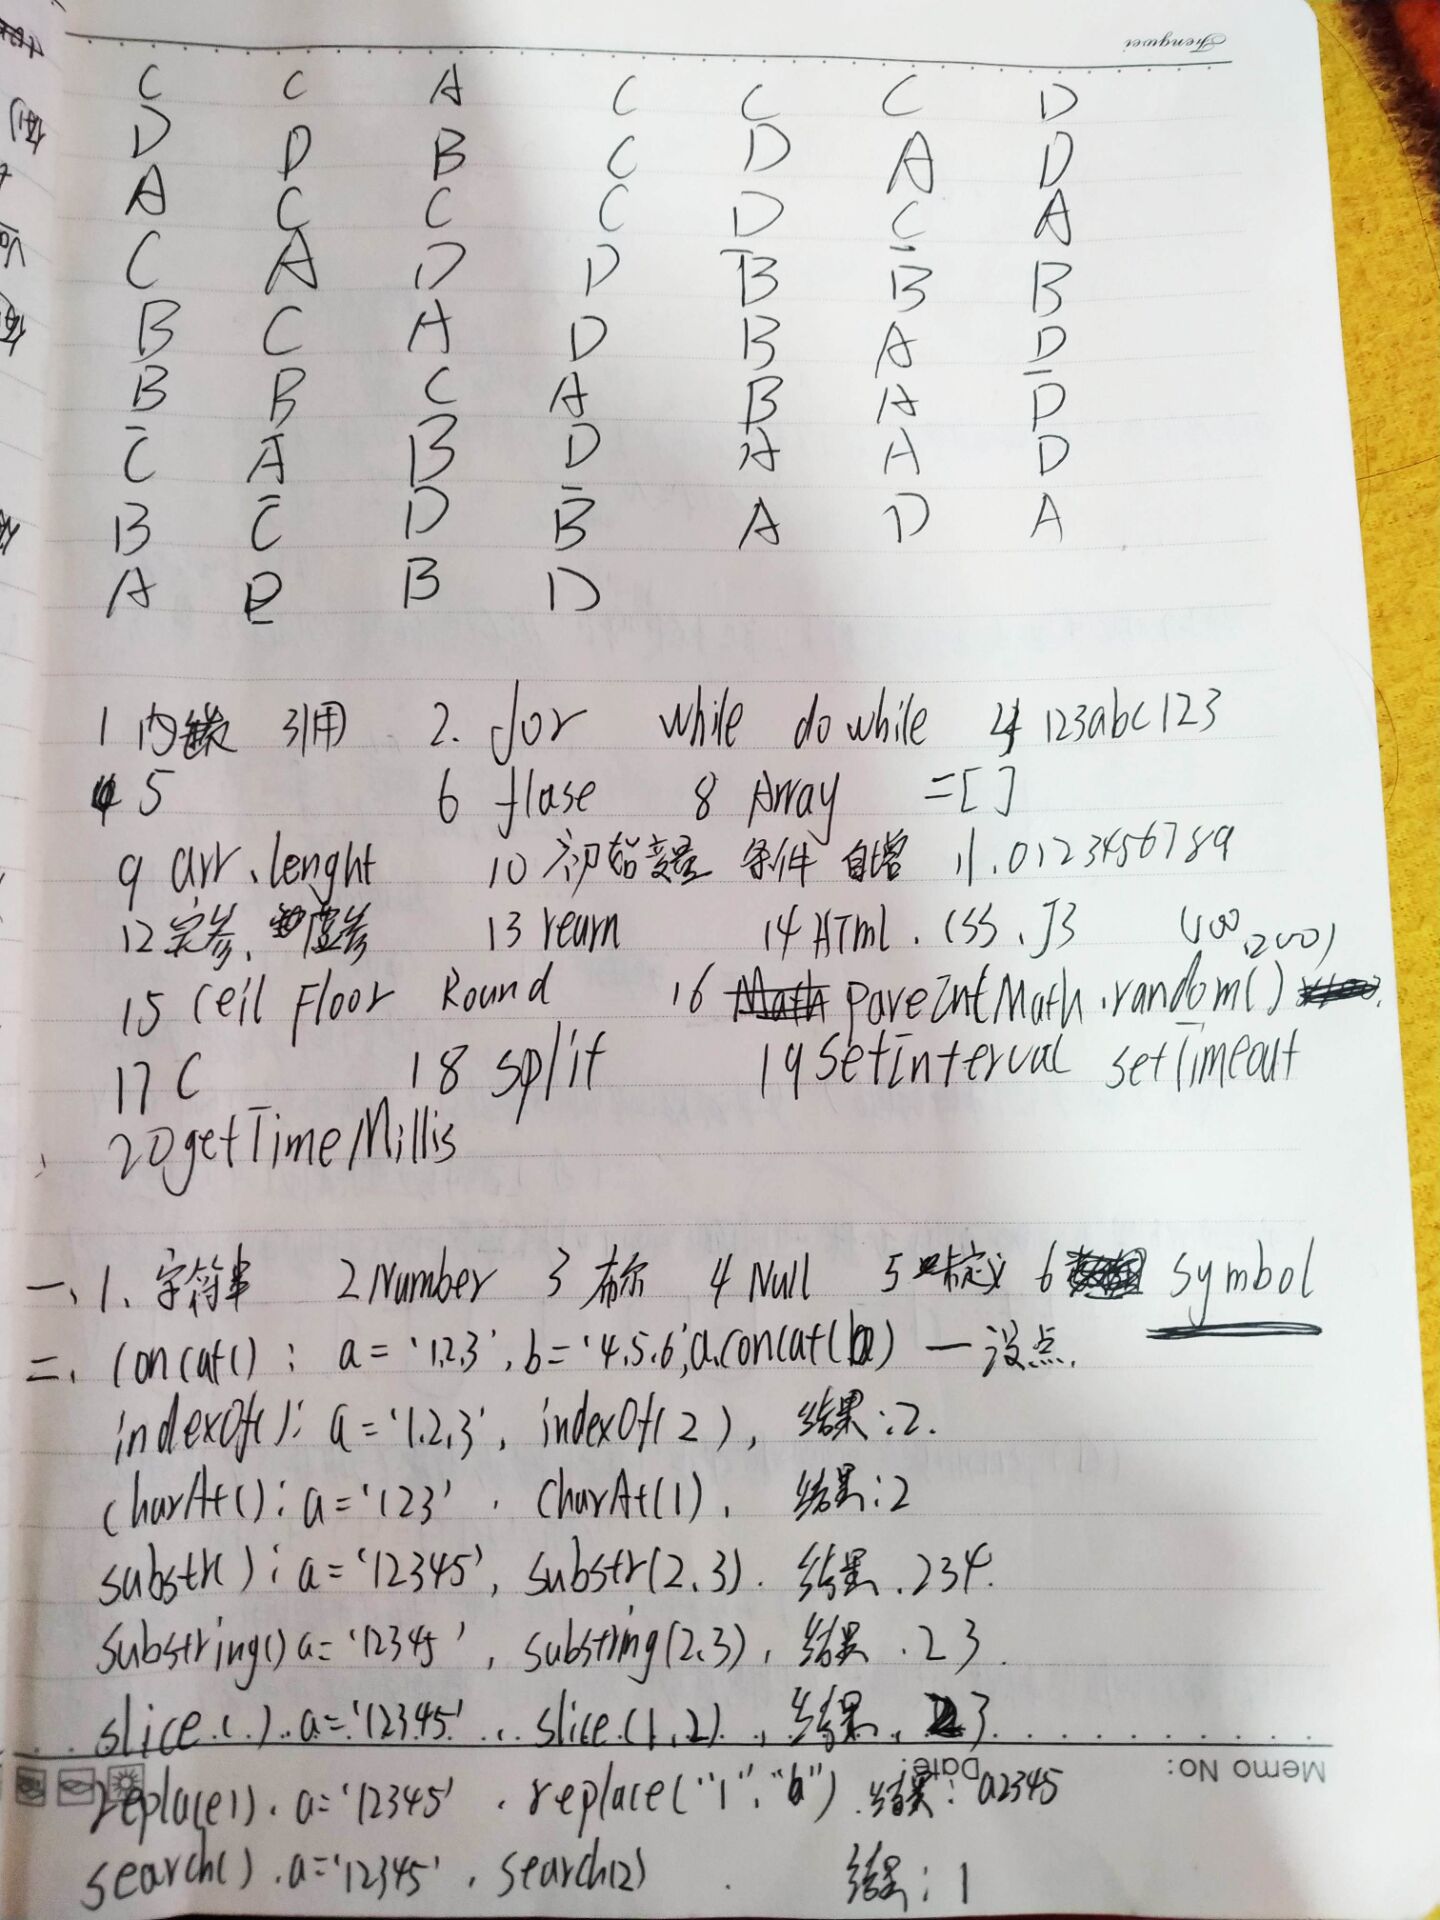 Fengwei
C C A C C C D
D D B C D A D
A C C C D C A
C A D D B B B
B C A D B A D
B B C A B A D
C A B D A A D
B C D B A D A
A D B D
1 内嵌 引用 2. for while do while 4 123abc123
5 6 flase 8 Array =[]
9 arr.lenght 10 初始变量 条件 自增 11.0123456789
12 实参、虚参 13 rearn 14 HTml.CSS.JS (100,200)
15 Ceil Floor Round 16 pareIntMath.random()
17 C 18 split 19 setInterval setTimeout
20 getTimeMillis
一、1、字符串 2 Number 3 布尔 4 Null 5 未定义 6 symbol
二、concat(): a='1.2.3',b='4.5.6',a.concat(b) 一没点.
indexOf(): a='1.2.3', indexOf(2), 结果:2.
charAt(): a='123' . charAt(1), 结果:2
substr(): a='12345', substr(2.3). 结果.234.
substring() a='12345', substring(2.3), 结果.23.
slice() a='12345' slice(1,2), 结果,3
Memo No: Date:
replace(). a='12345' . replace("1","a") 结果: a2345
search().a='12345', search(2) . 结果:1